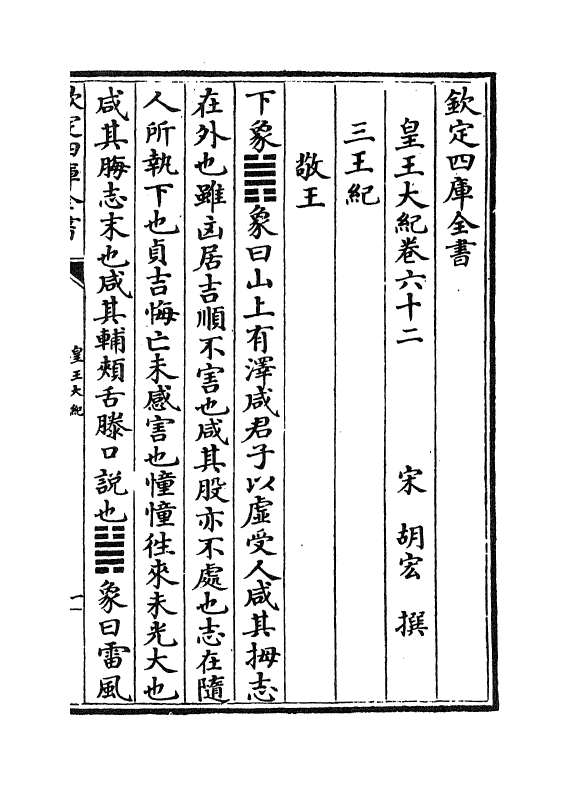 欽定四庫全書
皇王大紀卷六十二 宋 胡宏 撰
三王紀
敬王
下象䷞象曰山上有澤咸君子以虛受人咸其拇志
在外也雖凶居吉順不害也咸其股亦不處也志在隨
人所執下也貞吉悔亡未感害也憧憧徃來未光大也
咸其脢志末也咸其輔頰舌滕口說也䷟象曰雷風
欽定四庫全書 皇王大紀 一